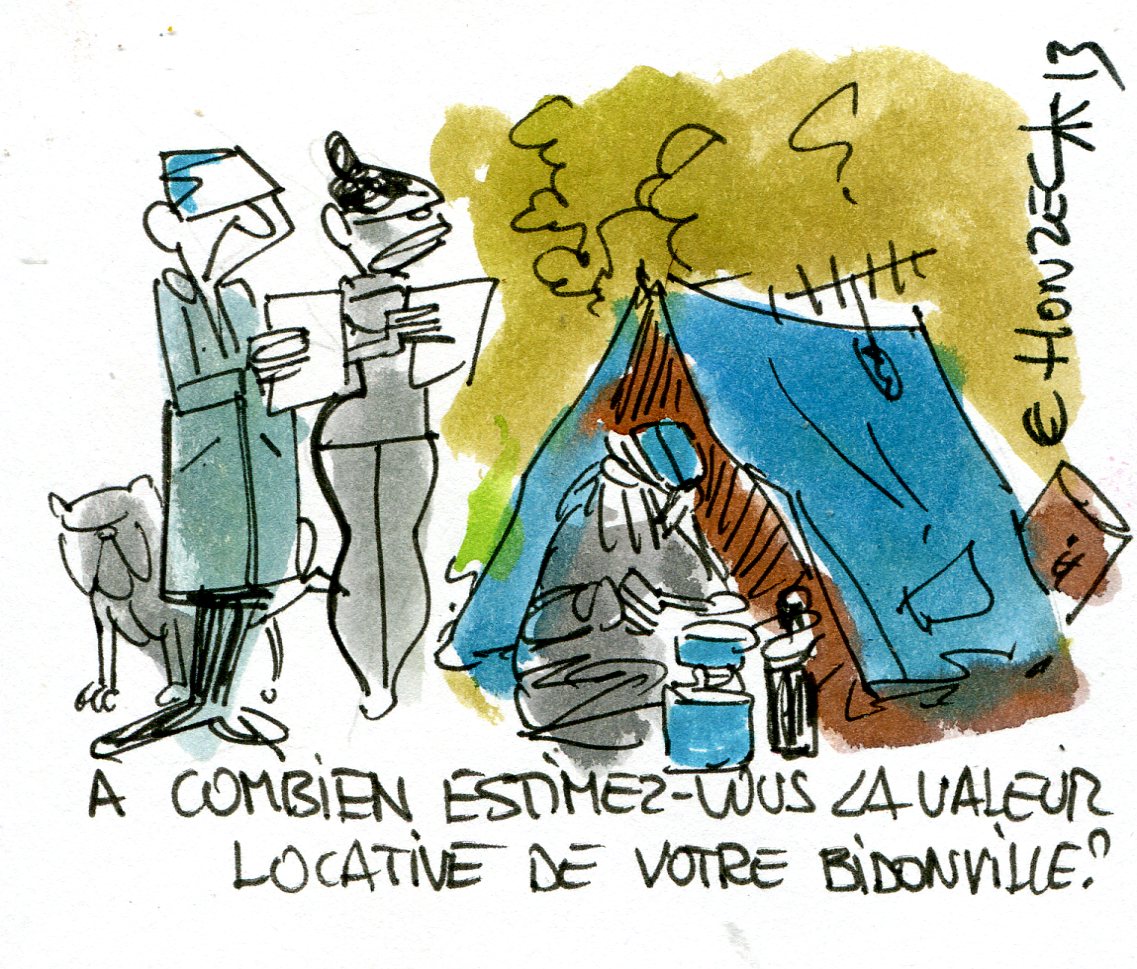 A COMBIEN ESTIMEZ-VOUS LA VALEUR
LOCATIVE DE VOTRE BIDONVILLE?
€ HONZEC 13